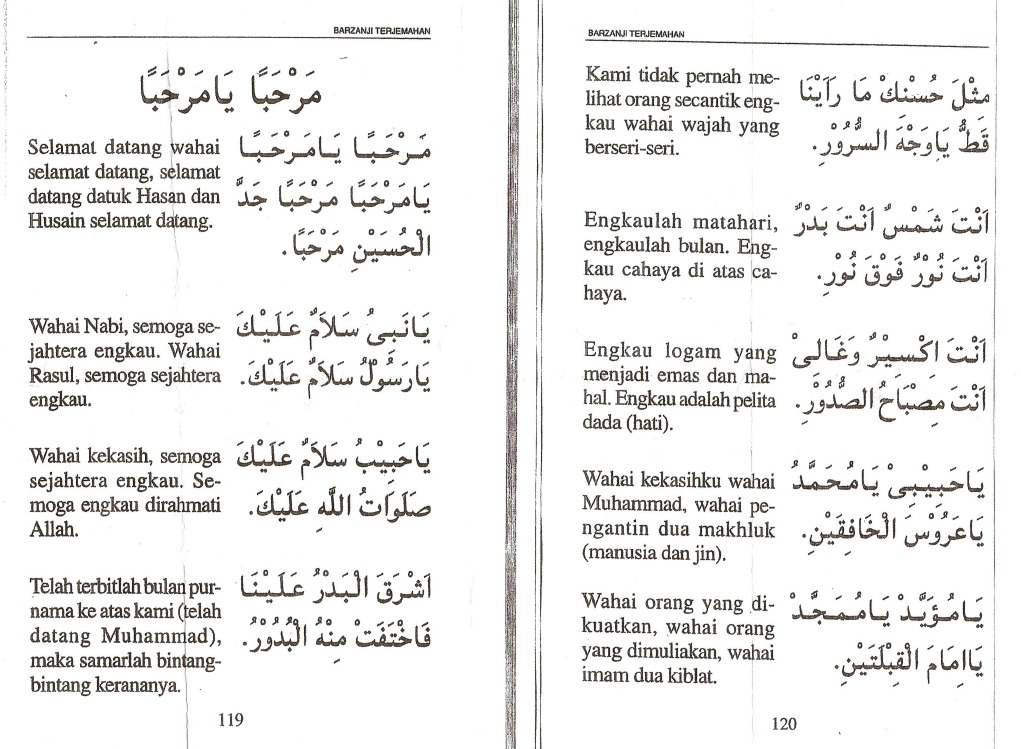 BARZANJI TERJEMAHAN
مَرْحَبًا يَامَرْحَبًا
Selamat datang wahai
selamat datang, selamat
datang datuk Hasan dan
Husain selamat datang.
مَرْحَبًا يَامَرْحَبًا
يَامَرْحَبًا مَرْحَبًا جَدَّ
الْحُسَيْنِ مَرْحَبًا.
Wahai Nabi, semoga se-
jahtera engkau. Wahai
Rasul, semoga sejahtera
engkau.
يَانَبِىُ سَلَامٌ عَلَيْكَ
يَارَسُوْلُ سَلَامٌ عَلَيْكَ.
Wahai kekasih, semoga
sejahtera engkau. Se-
moga engkau dirahmati
Allah.
يَاحَبِيْبُ سَلَامٌ عَلَيْكَ
صَلَوَاتُ اللَّهِ عَلَيْكَ.
Telah terbitlah bulan pur-
nama ke atas kami (telah
datang Muhammad),
maka samarlah bintang-
bintang kerananya.
اَشْرَقَ الْبَدْرُ عَلَيْنَا
فَاخْتَفَتْ مِنْهُ الْبُدُوْرُ.
119
BARZANJI TERJEMAHAN
Kami tidak pernah me-
lihat orang secantik eng-
kau wahai wajah yang
berseri-seri.
مِثْلَ حُسْنِكْ مَا رَاَيْنَا
قَطُّ يَاوَجْهَ السُّرُوْرِ.
Engkaulah matahari,
engkaulah bulan. Eng-
kau cahaya di atas ca-
haya.
اَنْتَ شَمْسٌ اَنْتَ بَدْرٌ
اَنْتَ نُوْرٌ فَوْقَ نُوْرِ.
Engkau logam yang
menjadi emas dan ma-
hal. Engkau adalah pelita
dada (hati).
اَنْتَ اِكْسِيْرٌ وَغَالِىْ
اَنْتَ مِصْبَاحُ الصُّدُوْرِ.
Wahai kekasihku wahai
Muhammad, wahai pe-
ngantin dua makhluk
(manusia dan jin).
يَاحَبِيْبِىْ يَامُحَمَّدُ
يَاعَرُوْسَ الْخَافِقَيْنِ.
Wahai orang yang di-
kuatkan, wahai orang
yang dimuliakan, wahai
imam dua kiblat.
يَامُؤَيَّدْ يَامُمَجَّدْ
يَااِمَامَ الْقِبْلَتَيْنِ.
120